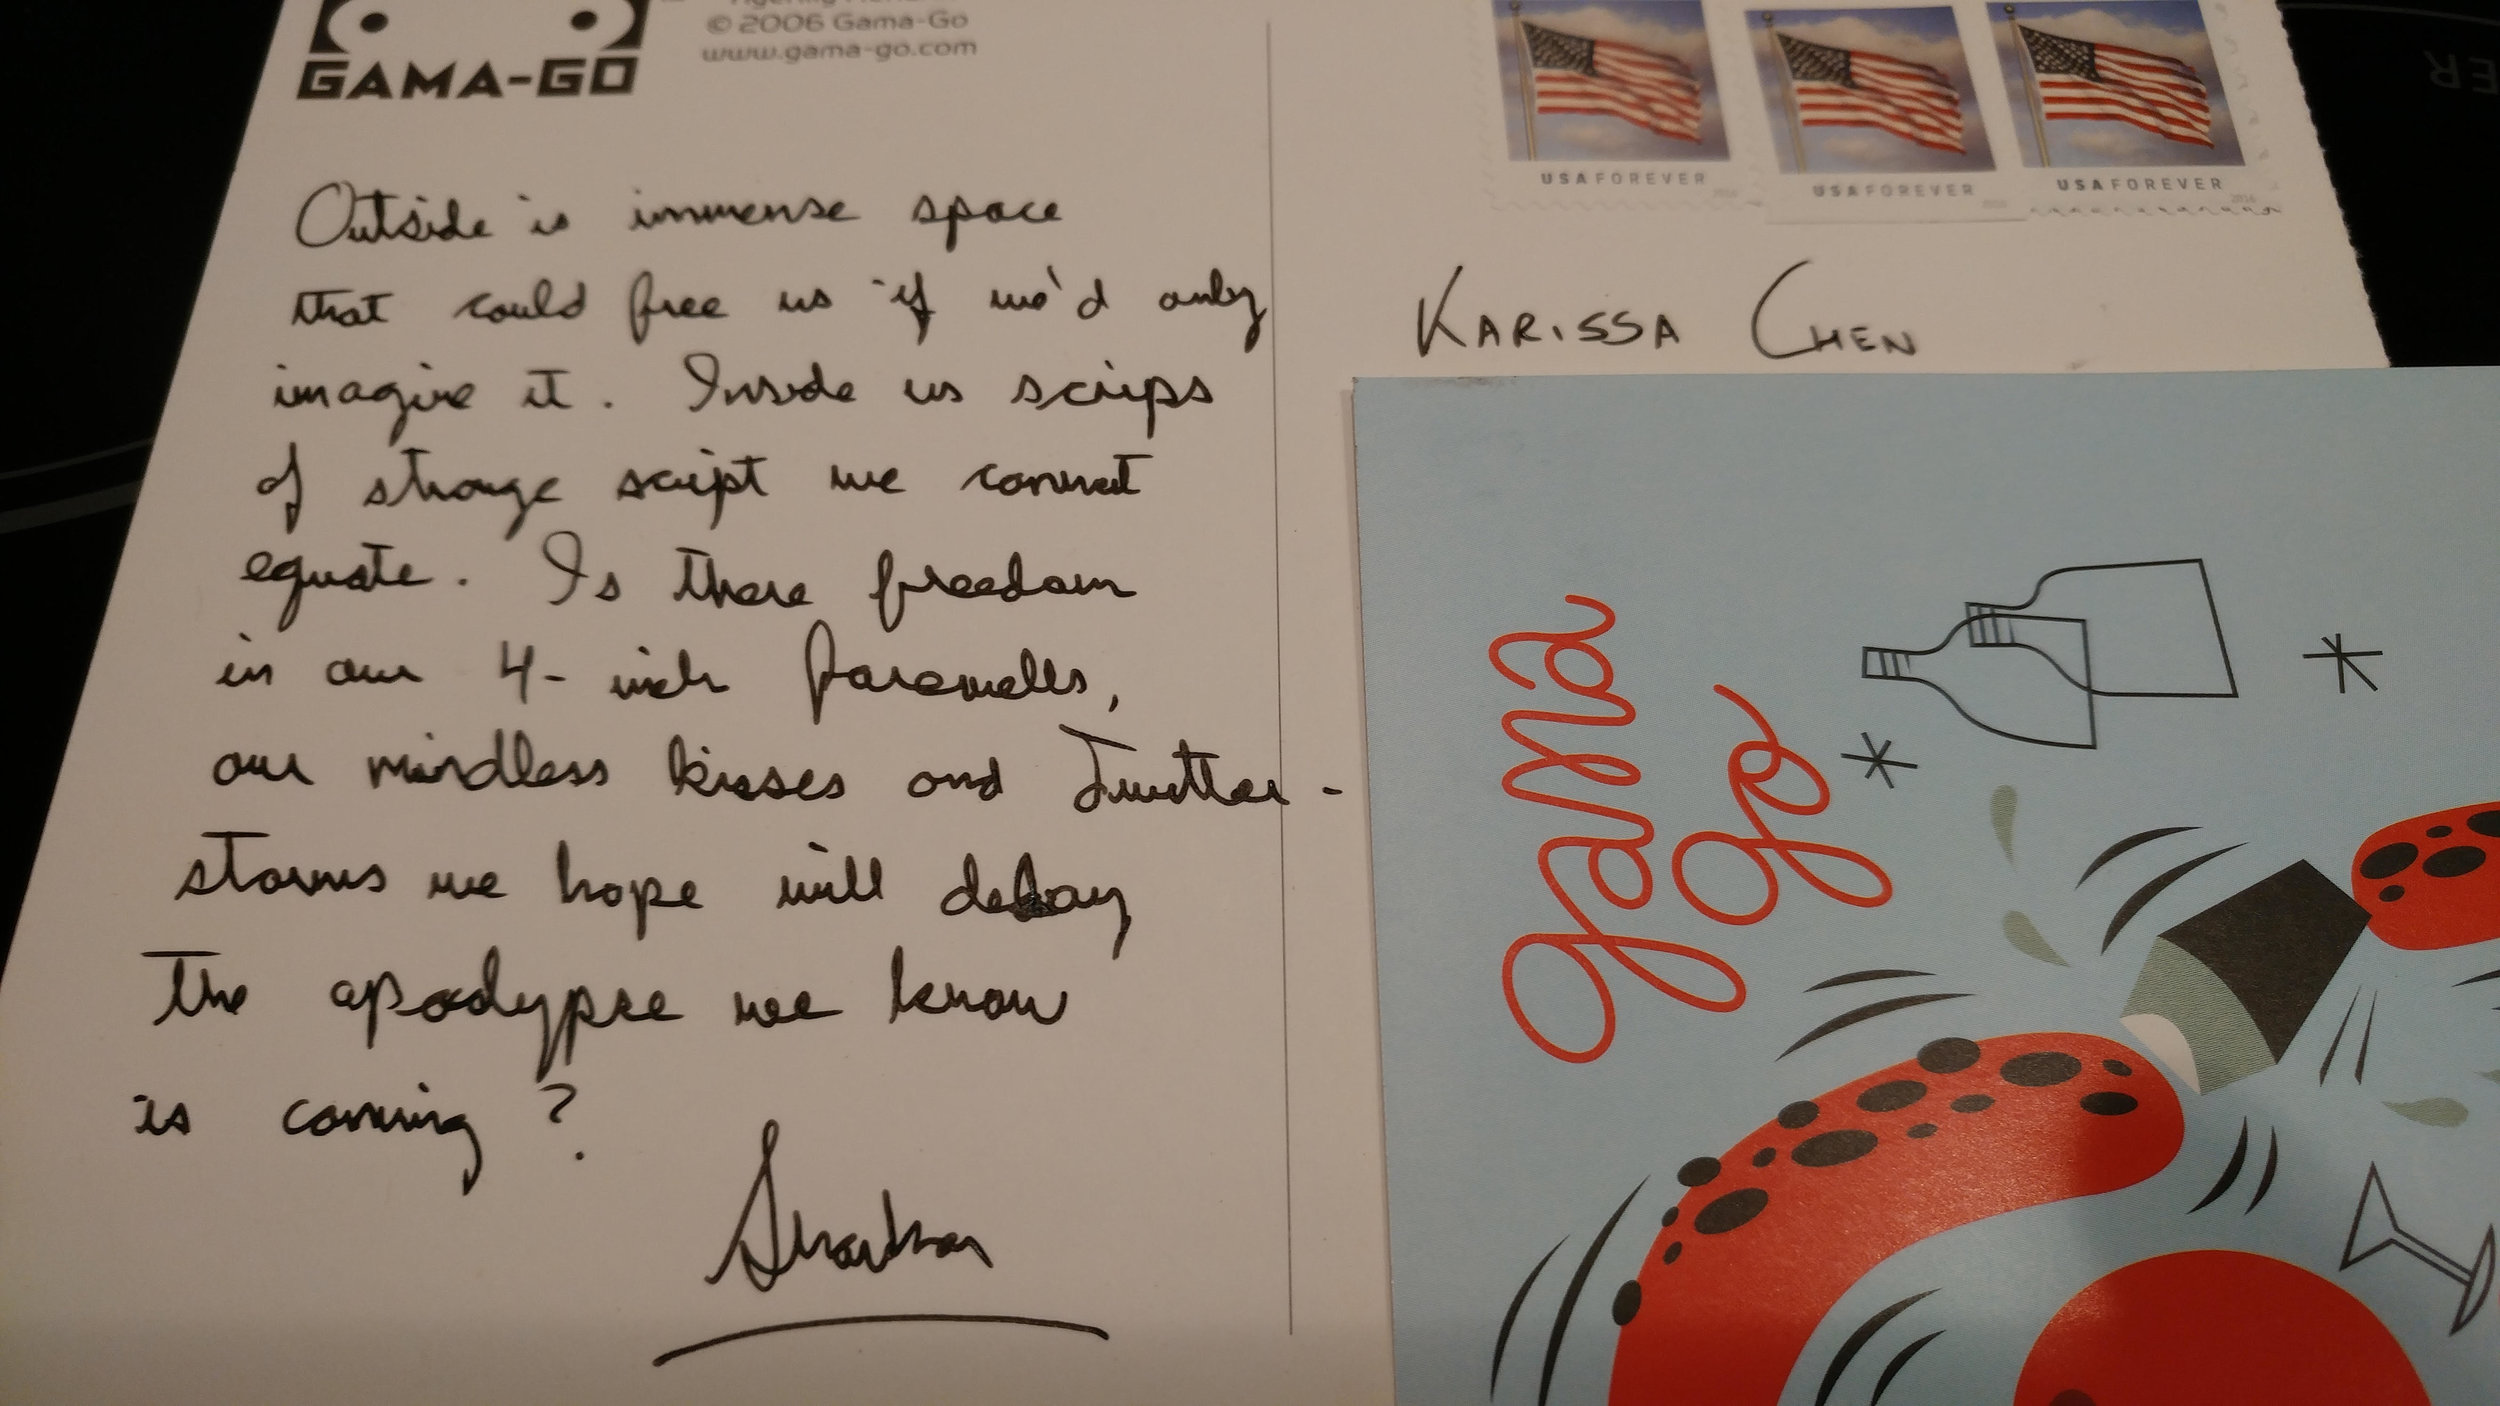 © 2006 Gama-Go
www.gama-go.com
GAMA-GO
Outside is immense space
that could free us if we'd only
imagine it. Inside us scrips
of strange script we cannot
equate. Is there freedom
in our 4-inch farewells,
our mindless kisses and Twitter-
storms we hope will delay
the apocalypse we know
is coming?
USA FOREVER 2016
USA FOREVER
USA FOREVER 2016
KARISSA CHEN
gama
go
ER